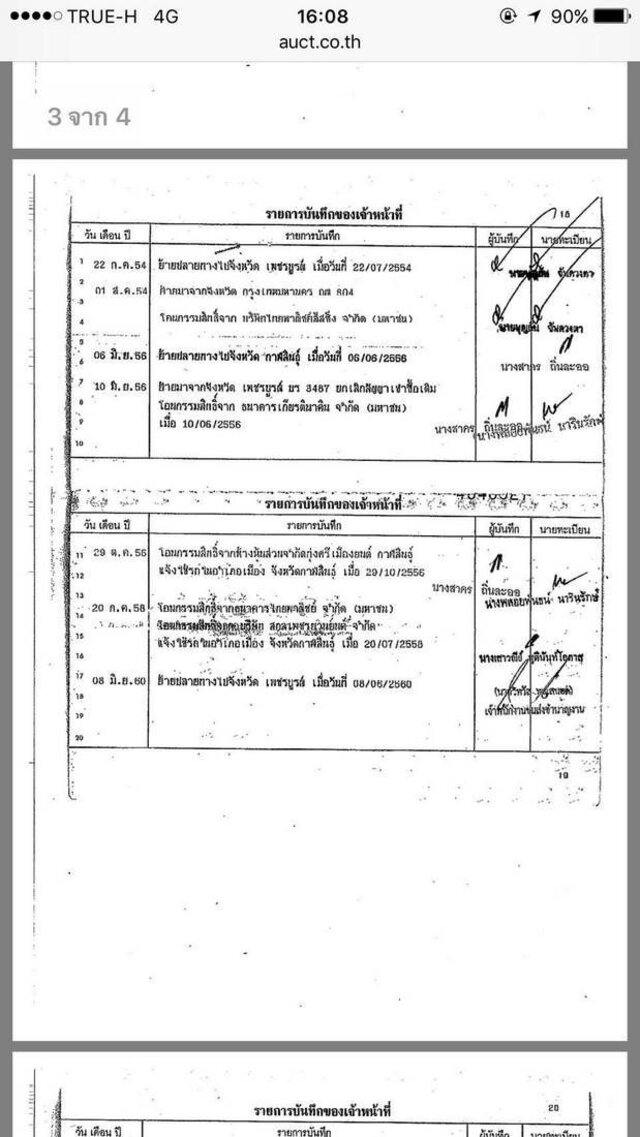 TRUE-H 4G 16:08 90%
auct.co.th
3 จาก 4
18
รายการบันทึกของเจ้าหน้าที่
วัน เดือน ปี รายการบันทึก ผู้บันทึก นายทะเบียน
1 22 ก.ค.54 ย้ายปลายทางไปจังหวัด เพชรบูรณ์ เมื่อวันที่ 22/07/2554
2 01 ส.ค.54 ย้ายมาจากจังหวัด กรุงเทพมหานคร
3
4 โอนกรรมสิทธิ์จาก (มหาชน)
5
6 06 มิ.ย.56 ย้ายปลายทางไปจังหวัด กาฬสินธุ์ เมื่อวันที่ 06/06/2556
นางสาคร ถิ่นละออ
7 10 มิ.ย.56 ย้ายมาจากจังหวัด เพชรบูรณ์ บร 3467 ยกเลิกสัญญาเช่าซื้อเดิม
8 โอนกรรมสิทธิ์จาก ธนาคารเกียรตินาคิน จำกัด (มหาชน)
9 เมื่อ 10/06/2556 นางสาคร ถิ่นละออ
10
รายการบันทึกของเจ้าหน้าที่
วัน เดือน ปี รายการบันทึก ผู้บันทึก นายทะเบียน
11 29 ต.ค.56 โอนกรรมสิทธิ์จากห้างหุ้นส่วนจำกัดกุ่งศรีเมืองยนต์ กาฬสินธุ์
12 แจ้งใช้รถในอำเภอเมือง จังหวัดกาฬสินธุ์ เมื่อ 29/10/2556
13 นางสาคร ถิ่นละออ
14 20 ก.ค.58 โอนกรรมสิทธิ์จากธนาคารไทยพาณิชย์ จำกัด (มหาชน)
15
16 แจ้งใช้รถในอำเภอเมือง จังหวัดกาฬสินธุ์ เมื่อ 20/07/2558
17 08 มิ.ย.60 ย้ายปลายทางไปจังหวัด เพชรบูรณ์ เมื่อวันที่ 08/06/2560
18
เจ้าพนักงานขนส่งชำนาญงาน
19
20
19
20
รายการบันทึกของเจ้าหน้าที่
วัน เดือน ปี รายการบันทึก ผู้บันทึก นายทะเบียน